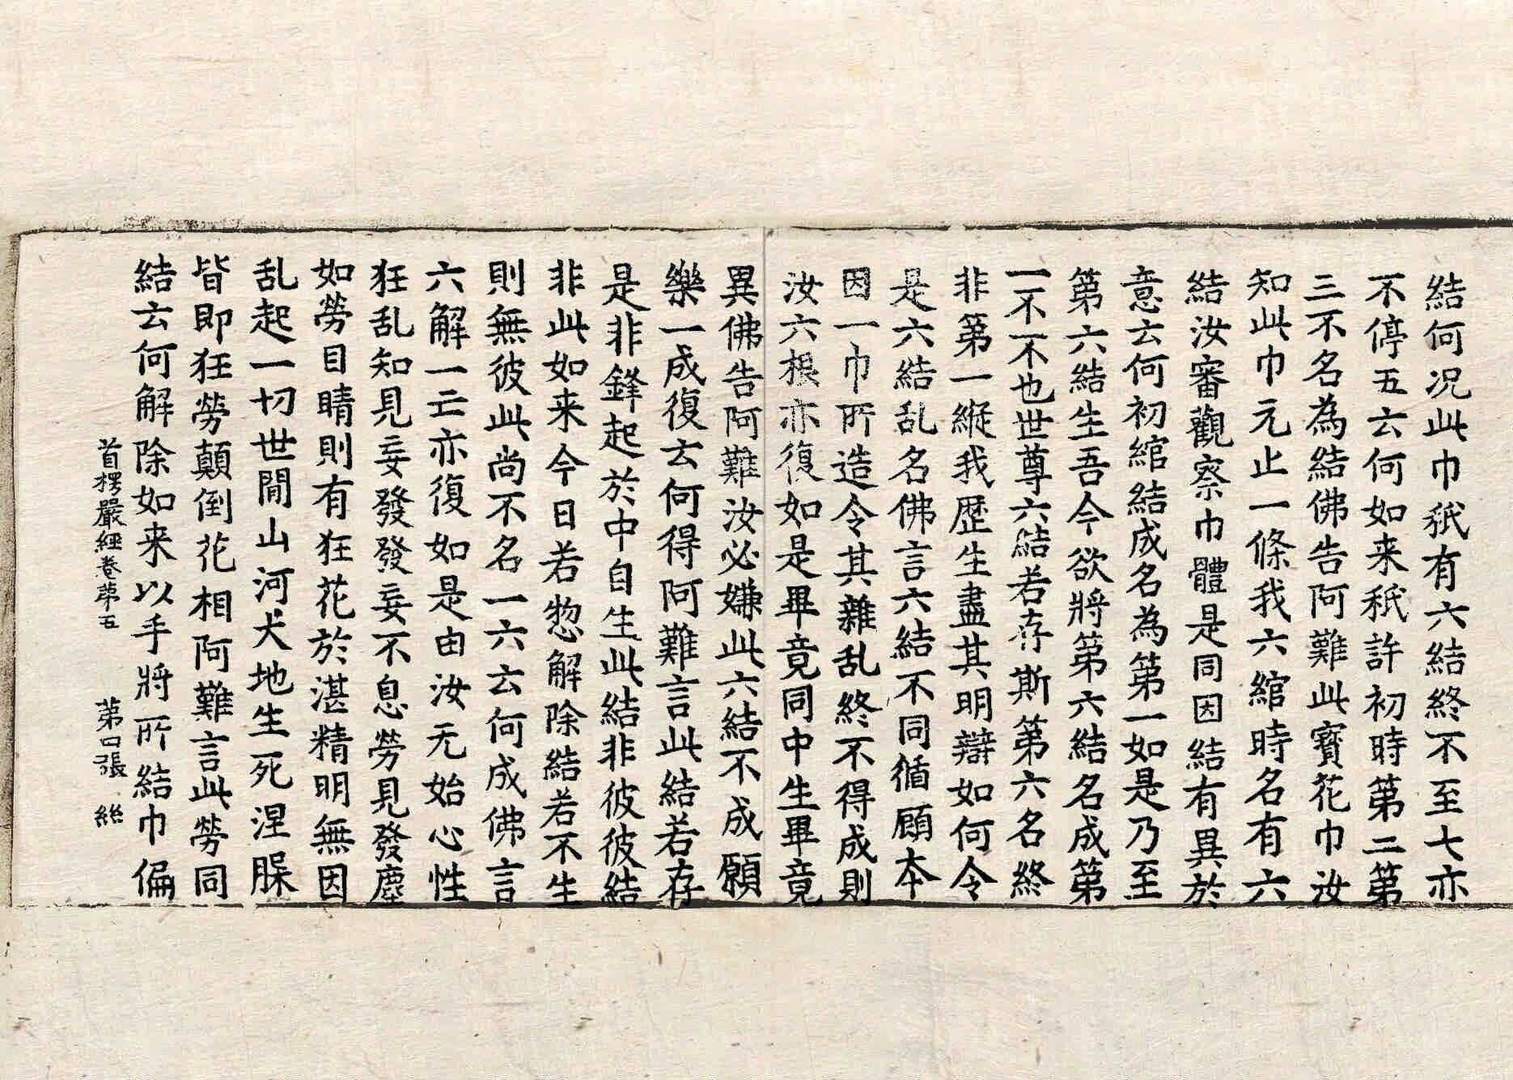 結何况此巾秖有六結終不至七亦
不停五云何如来秖許初時第二第
三不名為結佛告阿難此寳花巾汝
知此巾元止一條我六綰時名有六
結汝審觀察巾體是同因結有異於
意云何初綰結成名為第一如是乃至
第六結生吾今欲將第六結名成第
一不不也世尊六結若存斯第六名終
非第一縱我歷生盡其明辯如何令
是六結乱名佛言六結不同循顧本
因一巾所造令其雜乱終不得成則
汝六根亦復如是畢竟同中生畢竟
異佛告阿難汝必嫌此六結不成願
樂一成復云何得阿難言此結若存
是非鋒起於中自生此結非彼彼結
非此如来今日若惣解除結若不生
則無彼此尚不名一六云何成佛言
六解一亡亦復如是由汝无始心性
狂乱知見妄發發妄不息勞見發塵
如勞目睛則有狂花於湛精明無因
乱起一切世間山河大地生死涅牒
皆即狂勞顛倒花相阿難言此勞同
結云何解除如来以手將所結巾偏
首楞嚴經卷苐五 第四張 絲